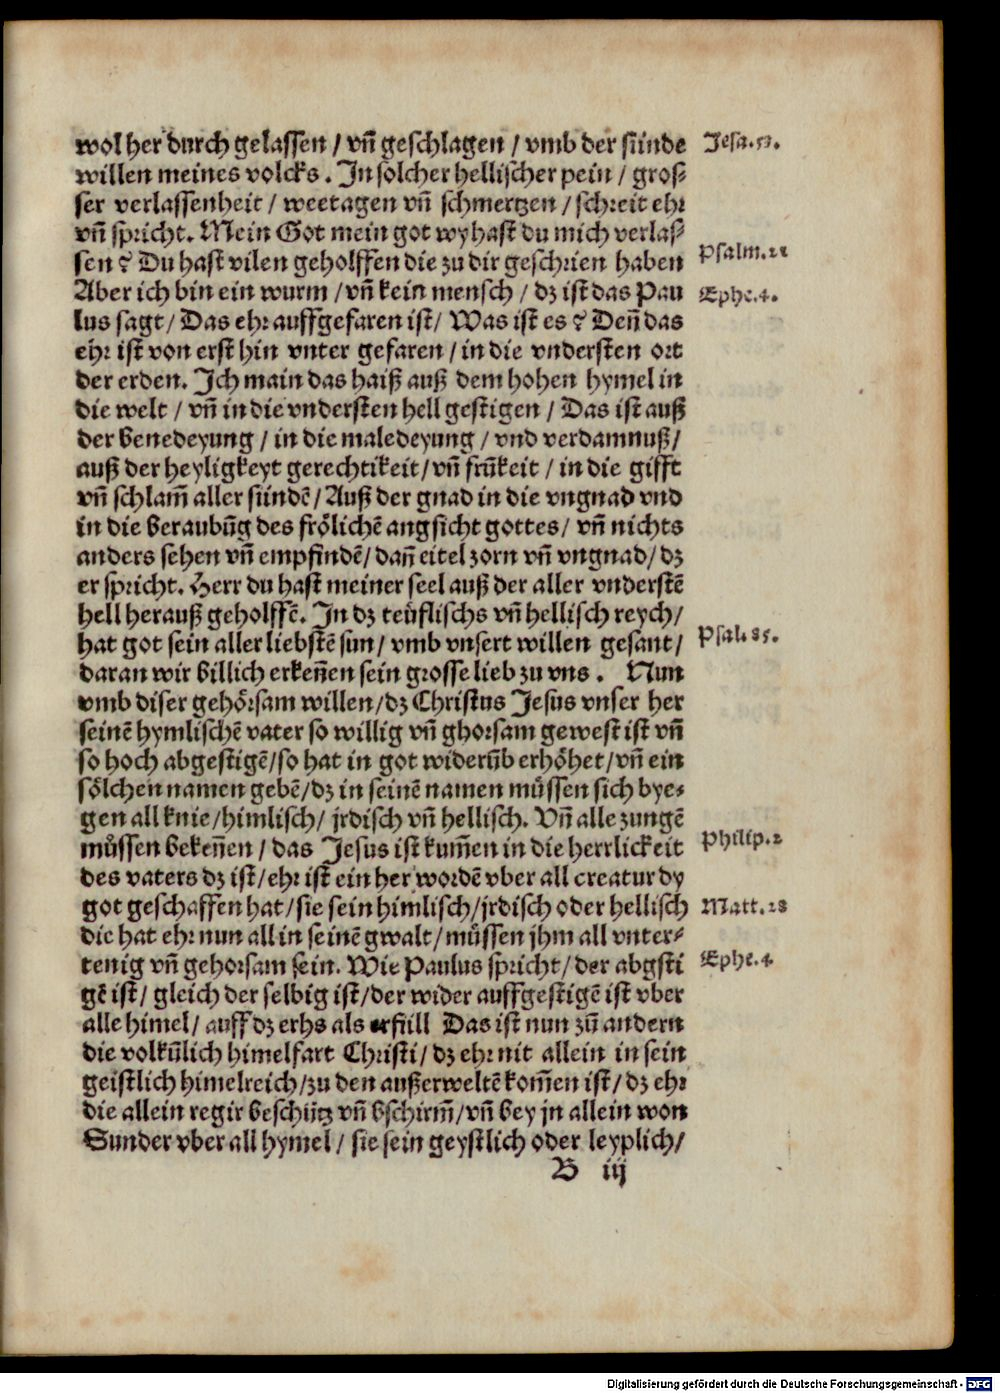 wol her durch gelassen / vñ geschlagen / vmb der sünde
Jesa. 53.
willen meines volcks. In solcher hellischer pein / gros⸗
ser verlassenheit / weetagen vñ schmertzen / schreit ehr
vñ spricht. Mein Got mein got wy hast du mich verlas⸗
sen? Du hast vilen geholffen die zu dir geschrien haben
Psalm. 21
Aber ich bin ein wurm / vñ kein mensch / dz ist das Pau
Ephe. 4.
lus sagt / Das ehr auffgefaren ist / Was ist es? Deñ das
ehr ist von erst hin vnter gefaren / in die vndersten ort
der erden. Ich main das haiß auß dem hohen hymel in
die welt / vñ in die vndersten hell gestigen / Das ist auß
der benedeyung / in die maledeyung / vnd verdamnuß /
auß der heyligkeyt gerechtikeit / vñ frũkeit / in die gifft
vñ schlam̃ aller sündẽ / Auß der gnad in die vngnad vnd
in die beraubũg des frölichẽ angsicht gottes / vñ nichts
anders sehen vñ empfindẽ / dañ eitel zorn vñ vngnad / dz
er spricht. Herr du hast meiner seel auß der aller vnderstẽ
hell herauß geholffẽ. In dz teüflischs vñ hellisch reych /
hat got sein aller liebstẽ sun / vmb vnsert willen gesant /
Psal. 85.
daran wir billich erkeñen sein grosse lieb zu vns. Nun
vmb diser gehörsam willen / dz Christus Jesus vnser her
seinẽ hymlischẽ vater so willig vñ ghorsam gewest ist vñ
so hoch abgestigẽ / so hat in got widerũb erhöhet / vñ ein
sölchen namen gebẽ / dz in seinẽ namen müssen sich bye⸗
gen all knie / himlisch / jrdisch vñ hellisch. Vñ alle zungẽ
müssen bekeñen / das Jesus ist kum̃en in die herrlickeit
Philip. 2
des vaters dz ist / ehr ist ein her wordẽ vber all creatur dy
got geschaffen hat / sie sein himlisch / jrdisch oder hellisch
Matt. 28
die hat ehr nun all in seinẽ gwalt / müssen jhm all vnter⸗
tenig vñ gehorsam sein. Wie Paulus spricht / der abgsti
Ephe. 4.
gẽ ist / gleich der selbig ist / der wider auffgestigẽ ist vber
alle himel / auff dz erhs als erfüll Das ist nun zũ andern
die volkũlich himelfart Christi / dz ehr nit allein in sein
geistlich himelreich / zu den außerweltẽ kom̃en ist / dz ehr
die allein regir beschütz vñ bschirm̃ / vñ bey jn allein won
Sunder vber all hymel / sie sein geystlich oder leyplich /
B iij
Digitalisierung gefördert durch die Deutsche Forschungsgemeinschaft - DFG